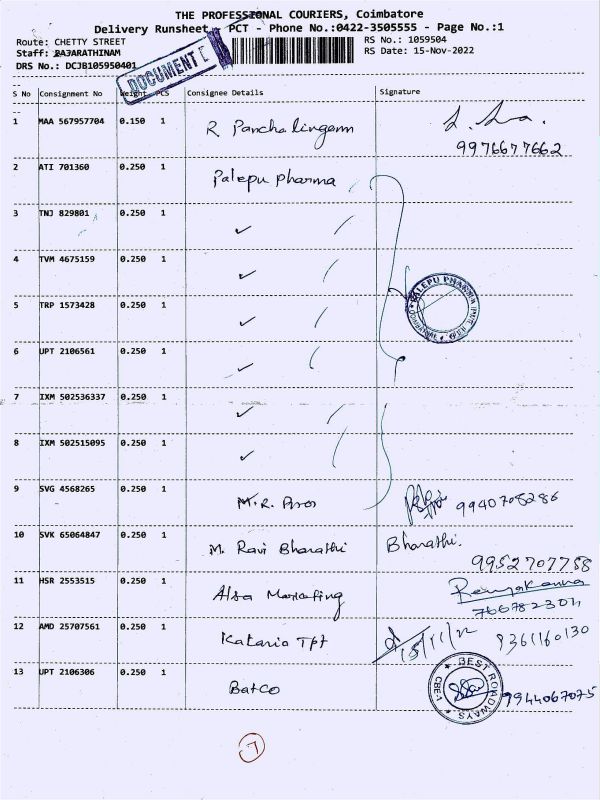 THE PROFESSIONAL COURIERS, Coimbatore
Delivery Runsheet - PCT - Phone No.:0422-3505555 - Page No.:1
Route: CHETTY STREET
RS No.: 1059504
Staff: RAJARATHINAM
RS Date: 15-Nov-2022
DRS No.: DCJB105950401
DOCUMENT
S No Consignment No Weight PCS Consignee Details Signature
1 MAA 567957704 0.150 1 R. Panchalingam
9976677662
2 ATI 701360 0.250 1 Palepu pharma
3 TNJ 829801 0.250 1 ✓
4 TVM 4675159 0.250 1 ✓
5 TRP 1573428 0.250 1 ✓
PALEPU PHARMA
6 UPT 2106561 0.250 1 ✓
7 IXM 502536337 0.250 1 ✓
8 IXM 502515095 0.250 1 ✓
9 SVG 4568265 0.250 1 M.R. Bros 9940708286
10 SVK 65064847 0.250 1 M. Ravi Bharathi Bharathi.
9952707758
11 HSR 2553515 0.250 1 Alsa Marketing
12 AMD 25707561 0.250 1 Kataria Tpt 15/11/22 9361160130
13 UPT 2106306 0.250 1 BatCo 9944067075
BEST ROADWAYS
CBE-1
7